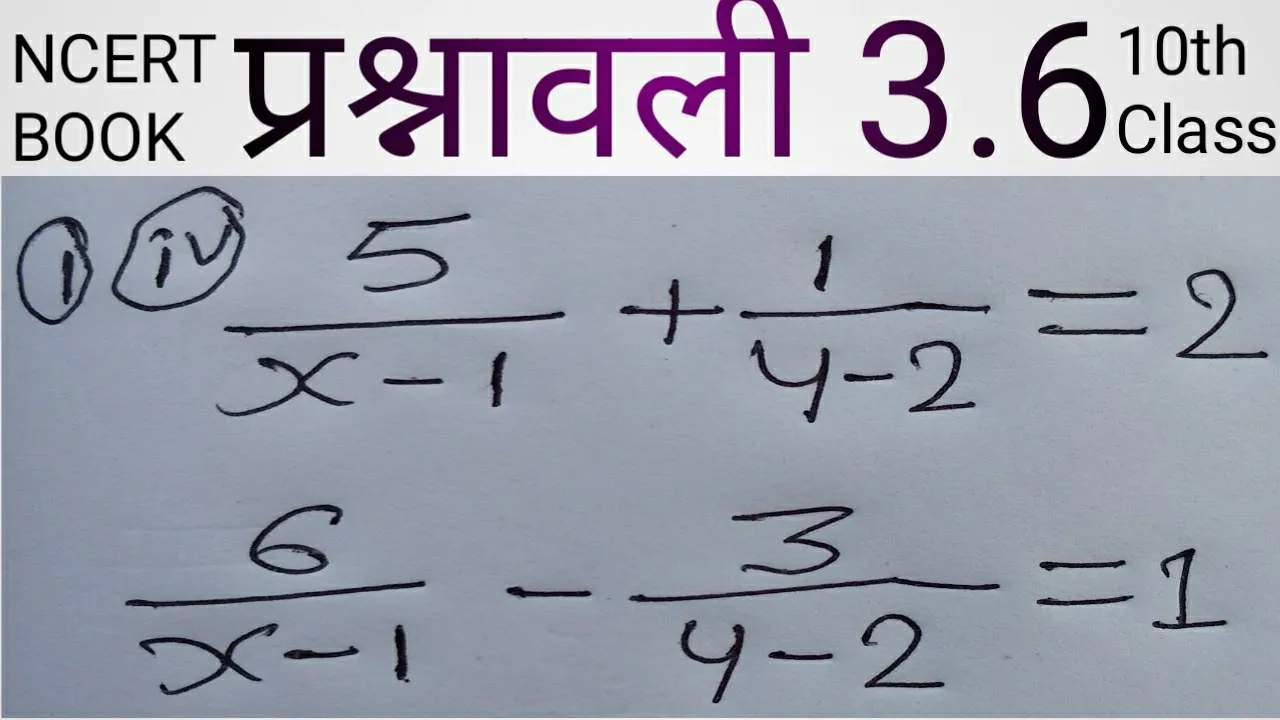 NCERT BOOK प्रश्नावली 3.6 10th Class
① (iv) 5/(x-1) + 1/(y-2) = 2
6/(x-1) - 3/(y-2) = 1